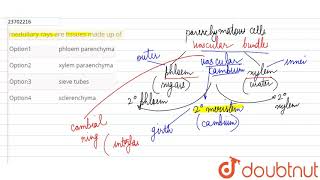 23702216
medullary rays are tissues made up of
Option1 phloem parenchyma
Option2 xylem paraenchyma
Option3 sieve tubes
Option4 sclerenchyma
parenchymatous cells
vascular bundle
outer
vascular cambium
inner
phloem (sugars)
xylem (water)
2° phloem
2° meristem (cambium)
2° xylem
cambial ring
girth
doubtnut